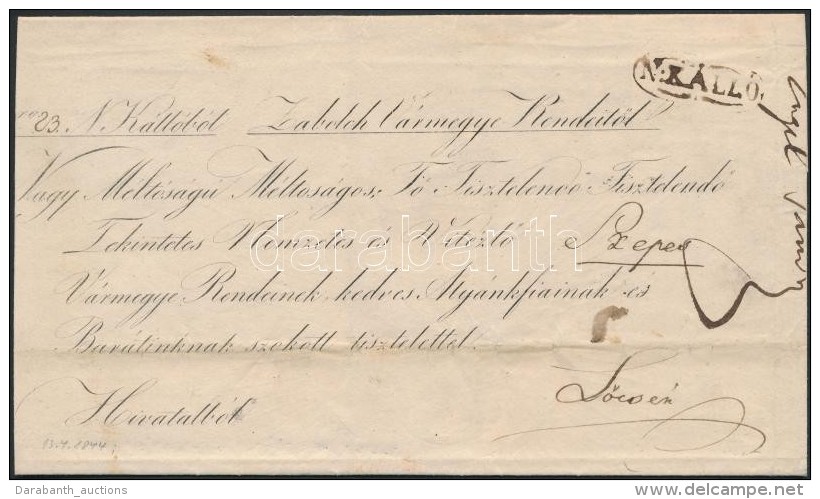 N. KÁLLÓ.
23. N. Kállóból Zabolch Vármegye Rendeitől
Nagy Méltóságú Méltoságos, Fő Tisztelendő Tisztelendő
Tekintetes Nemzetes és Vitézlő Szepes
Vármegye Rendeinek, kedves Atyánkfiainak és
Barátinknak szokott tisztelettel.
Lőcsén
Hivatalból
13.4.1844
darabanth
Darabanth_auctions
www.delcampe.net